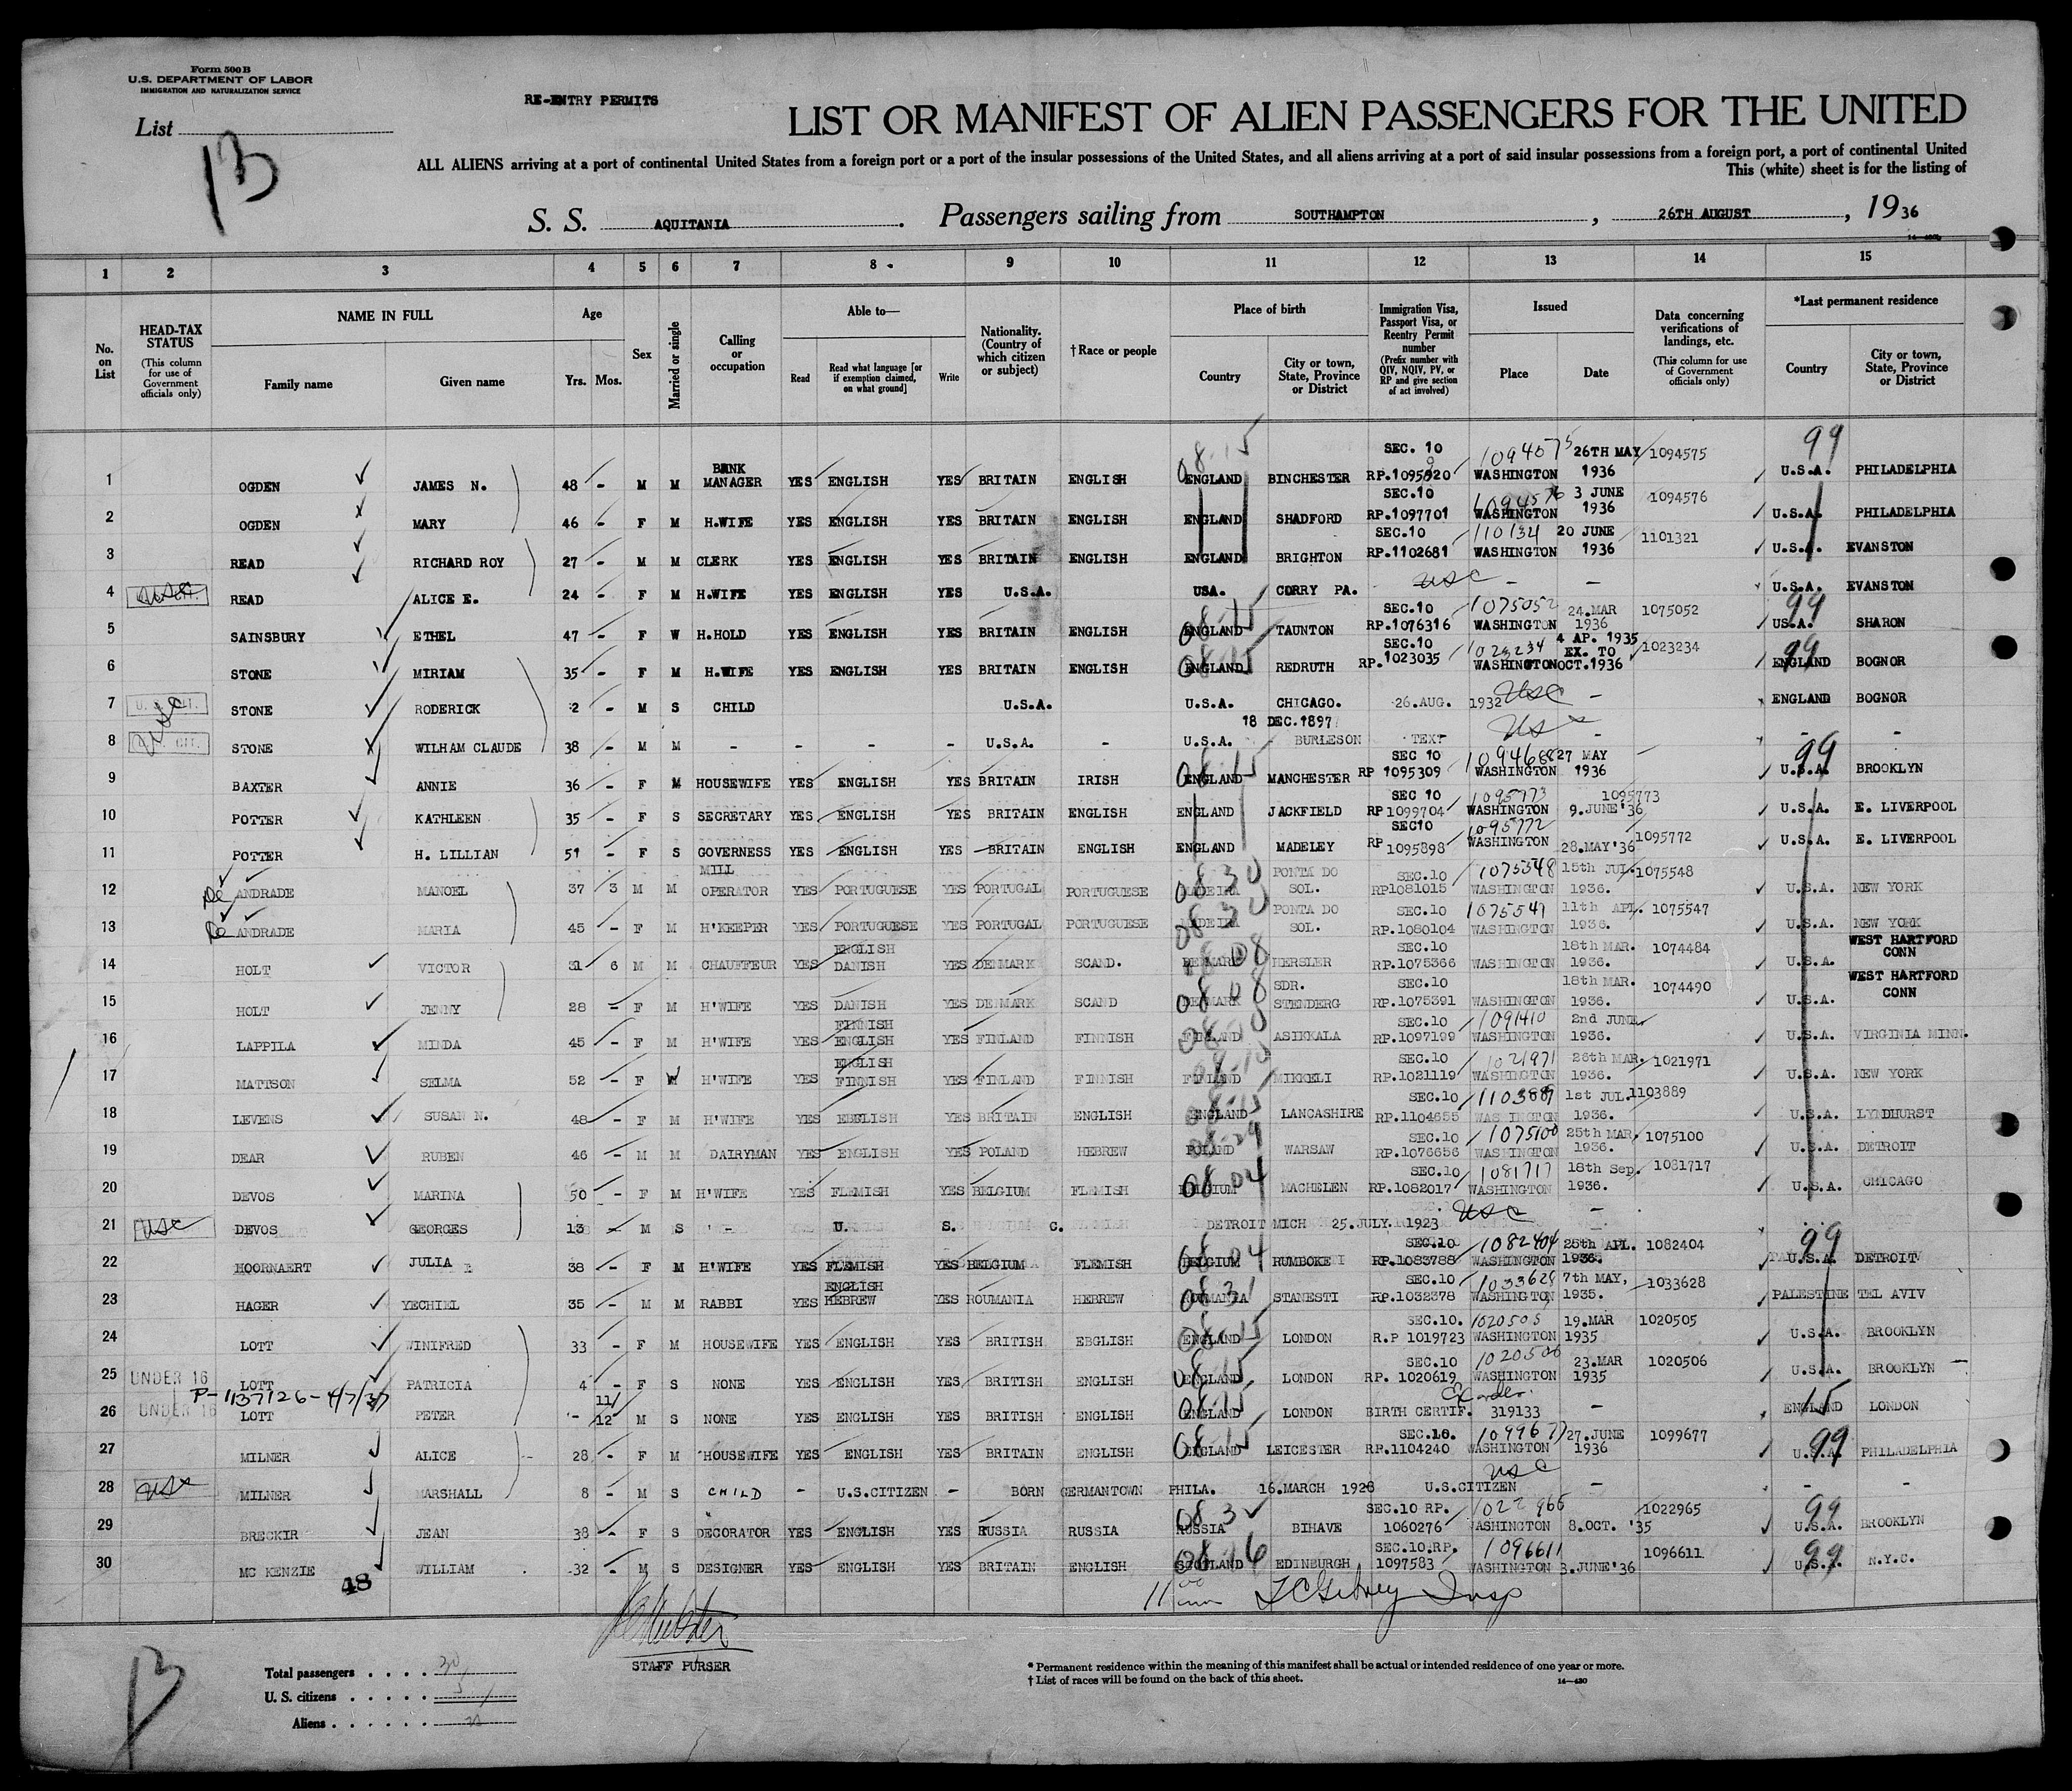 Form 500 B
U.S. DEPARTMENT OF LABOR
IMMIGRATION AND NATURALIZATION SERVICE
RE-ENTRY PERMITS
List
13
LIST OR MANIFEST OF ALIEN PASSENGERS FOR THE UNITED
ALL ALIENS arriving at a port of continental United States from a foreign port or a port of the insular possessions of the United States, and all aliens arriving at a port of said insular possessions from a foreign port, a port of continental United
This (white) sheet is for the listing of
S. S. AQUITANIA. Passengers sailing from SOUTHAMPTON, 26TH AUGUST, 1936
1 2 3 4 5 6 7 8 9 10 11 12 13 14 15
No. on List
HEAD-TAX STATUS (This column for use of Government officials only)
NAME IN FULL
Family name
Given name
Age
Yrs. Mos.
Sex
Married or single
Calling or occupation
Able to—
Read
Read what language [or if exemption claimed, on what ground]
Write
Nationality. (Country of which citizen or subject)
†Race or people
Place of birth
Country
City or town, State, Province or District
Immigration Visa, Passport Visa, or Reentry Permit number (Prefix number with QIV, NQIV, PV, or RP and give section of act involved)
Issued
Place
Date
Data concerning verifications of landings, etc. (This column for use of Government officials only)
*Last permanent residence
Country
City or town, State, Province or District
1 OGDEN JAMES N. 48 - M M BANK MANAGER YES ENGLISH YES BRITAIN ENGLISH 08-15 ENGLAND BINCHESTER SEC. 10 RP.1095820 1094575 WASHINGTON 26TH MAY 1936 1094575 99 U.S.A. PHILADELPHIA
2 OGDEN MARY 46 - F M H.WIFE YES ENGLISH YES BRITAIN ENGLISH ENGLAND SHADFORD SEC.10 RP.1097701 1094576 WASHINGTON 3 JUNE 1936 1094576 U.S.A. PHILADELPHIA
3 READ RICHARD ROY 27 - M M CLERK YES ENGLISH YES BRITAIN ENGLISH ENGLAND BRIGHTON SEC.10 RP.1102681 WASHINGTON 20 JUNE 1936 1101321 U.S.A. EVANSTON
4 READ ALICE E. 24 - F M H.WIFE YES ENGLISH YES U.S.A. USA. CORRY PA. USC - - U.S.A. EVANSTON
5 SAINSBURY ETHEL 47 - F W H.HOLD YES ENGLISH YES BRITAIN ENGLISH 08-15 ENGLAND TAUNTON SEC.10 RP.1076316 1075052 WASHINGTON 24.MAR 1936 1075052 99 US.A. SHARON
6 STONE MIRIAM 35 - F M H.WIFE YES ENGLISH YES BRITAIN ENGLISH 08-15 ENGLAND REDRUTH SEC.10 RP.1023035 1023234 WASHINGTON 4 AP. 1935 EX. TO OCT.1936 1023234 99 ENGLAND BOGNOR
7 U.S. CIT. USC STONE RODERICK 2 - M S CHILD U.S.A. U.S.A. CHICAGO. 26.AUG. 1932 USC - ENGLAND BOGNOR
8 STONE WILHAM CLAUDE 38 - M M - - - - U.S.A. - U.S.A. 18 DEC.1897 BURLESON TEXT - - -
9 BAXTER ANNIE 36 - F M HOUSEWIFE YES ENGLISH YES BRITAIN IRISH 08-15 ENGLAND MANCHESTER SEC 10 RP 1095309 1094688 WASHINGTON 27 MAY 1936 - 99 U.S.A. BROOKLYN
10 POTTER KATHLEEN 35 - F S SECRETARY YES ENGLISH YES BRITAIN ENGLISH ENGLAND JACKFIELD SEC 10 RP 1099704 1095773 WASHINGTON 9.JUNE'36 1095773 U.S.A. E. LIVERPOOL
11 POTTER H. LILLIAN 51 - F S GOVERNESS YES ENGLISH YES BRITAIN ENGLISH ENGLAND MADELEY SEC10 RP 1095898 1095772 WASHINGTON 28.MAY'36 1095772 U.S.A. E. LIVERPOOL
12 De ANDRADE MANOEL 37 3 M M MILL OPERATOR YES PORTUGUESE YES PORTUGAL PORTUGUESE 08 30 MADEIRA PONTA DO SOL. SEC.10 RP1081015 1075548 WASHINGTON 15th JUL. 1936. 1075548 U.S.A. NEW YORK
13 De ANDRADE MARIA 45 - F M H'KEEPER YES PORTUGUESE YES PORTUGAL PORTUGUESE 08 30 MADEIRA PONTA DO SOL. SEC.10 RP.1080104 1075547 WASHINGTON 11th APL. 1936. 1075547 U.S.A. NEW YORK
14 HOLT VICTOR 31 6 M M CHAUFFEUR YES ENGLISH DANISH YES DENMARK SCAND. 08 DENMARK HERSLER SEC.10 RP.1075366 WASHINGTON 18th MAR. 1936. 1074484 U.S.A. WEST HARTFORD CONN
15 HOLT JENNY 28 - F M H'WIFE YES DANISH YES DENMARK SCAND 08 08 DENMARK SDR. STENDERG SEC.10 RP.1075391 WASHINGTON 18th MAR. 1936. 1074490 U.S.A. WEST HARTFORD CONN
16 LAPPILA MINDA 45 - F M H'WIFE YES FINNISH ENGLISH YES FINLAND FINNISH FINLAND ASIKKALA SEC.10 RP.1097199 1091410 WASHINGTON 2nd JUNE 1936. U.S.A. VIRGINIA MINN.
17 MATTSON SELMA 52 - F W H'WIFE YES ENGLISH FINNISH YES FINLAND FINNISH FINLAND MIKKELI SEC.10 RP.1021119 1021971 WASHINGTON 26th MAR. 1936. 1021971 U.S.A. NEW YORK
18 LEVENS SUSAN N. 48 - F M H'WIFE YES EBGLISH YES BRITAIN ENGLISH 08-15 ENGLAND LANCASHIRE SEC.10 RP.1104655 1103889 WASHINGTON 1st JUL. 1936. 1103889 U.S.A. LYNDHURST
19 DEAR RUBEN 46 - M M DAIRYMAN YES ENGLISH YES POLAND HEBREW POLAND WARSAW SEC.10 RP.1076656 1075100 WASHINGTON 25th MAR. 1936. 1075100 U.S.A. DETROIT
20 DEVOS MARINA 50 - F M H'WIFE YES FLEMISH YES BELGIUM FLEMISH 08 04 BELGIUM MACHELEN SEC.10 RP.1082017 1081717 WASHINGTON 18th Sep. 1936. 1081717 U.S.A. CHICAGO
21 USC DEVOS GEORGES 13 - M S - U. S. C. DETROIT MICH 25.JULY. 1923 USC -
22 HOORNAERT JULIA 38 - F M H'WIFE YES FLEMISH YES BELGIUM FLEMISH 08 04 BELGIUM RUMBOKE SEC.10 RP.1083788 1082404 WASHINGTON 25th APL. 1936. 1082404 99 U.S.A. DETROIT
23 HAGER YECHIEL 35 - M M RABBI YES ENGLISH HEBREW YES ROUMANIA HEBREW 08 31 ROUMANIA STANESTI SEC.10 RP.1032378 1033628 WASHINGTON 7th MAY, 1935. 1033628 PALESTINE TEL AVIV
24 LOTT WINIFRED 33 - F M HOUSEWIFE YES ENGLISH YES BRITISH EBGLISH 08-15 ENGLAND LONDON SEC.10. R.P 1019723 1020505 WASHINGTON 19.MAR 1935 1020505 U.S.A. BROOKLYN
25 UNDER 16 LOTT PATRICIA 4 - F S NONE YES ENGLISH YES BRITISH ENGLISH 08-15 ENGLAND LONDON SEC.10 RP. 1020619 1020506 WASHINGTON 23.MAR 1935 1020506 U.S.A. BROOKLYN
P-1137126-4/7/37
26 UNDER 16 LOTT PETER - 11/12 M S NONE YES ENGLISH YES BRITISH ENGLISH 08-15 ENGLAND LONDON BIRTH CERTIF. 319133 - 15 ENGLAND LONDON
27 MILNER ALICE 28 - F M HOUSEWIFE YES ENGLISH YES BRITAIN ENGLISH 08 15 ENGLAND LEICESTER SEC.10. RP.1104240 1099677 WASHINGTON 27.JUNE 1936 1099677 99 U.S.A. PHILADELPHIA
28 USC MILNER MARSHALL 8 - M S CHILD - U.S.CITIZEN - BORN GERMANTOWN PHILA. 16.MARCH 1928 U.S.CITIZEN USC - - -
29 BRECKIR JEAN 38 - F S DECORATOR YES ENGLISH YES RUSSIA RUSSIA 08 32 RUSSIA BIHAVE SEC.10 RP. 1060276 1022965 WASHINGTON 8.OCT. '35 1022965 99 U.S.A. BROOKLYN
30 MC KENZIE WILLIAM 32 - M S DESIGNER YES ENGLISH YES BRITAIN ENGLISH 08 16 SCOTLAND EDINBURGH SEC.10.RP. 1097583 1096611 WASHINGTON 3.JUNE'36 1096611 99 U.S.A. N.Y.C.
48
STAFF PURSER
13
Total passengers . . . . 30
U. S. citizens . . . . . 5
Aliens . . . . . .
* Permanent residence within the meaning of this manifest shall be actual or intended residence of one year or more.
† List of races will be found on the back of this sheet.
14—430